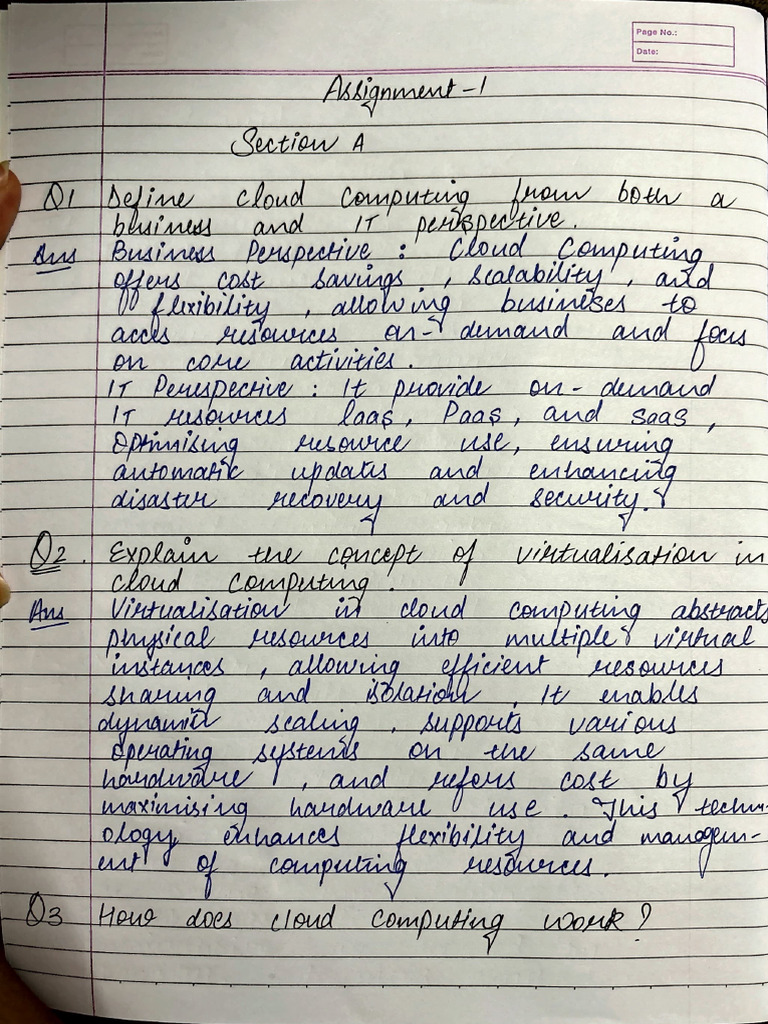 Page No.:
Date:
Assignment-1
Section A
Q1 Define cloud computing from both a
business and IT perspective.
Ans Business Perspective : Cloud Computing
offers cost savings , scalability , and
flexibility , allowing businesses to
acces resources on-demand and focus
on core activities.
IT Perespective : It provide on-demand
IT resources Iaas, Paas, and saas,
Optimising resource use, ensuring
automatic updates and enhancing
disaster recovery and security.
Q2. Explain the concept of virtualisation in
cloud computing.
Ans Virtualisation in cloud computing abstracts
physical resources into multiple virtual
instances , allowing efficient resources
sharing and isolation . It enables
dynamic scaling , supports various
operating systems on the same
hardware , and refers cost by
maximising hardware use . This techn-
ology enhances flexibility and managem-
ent of computing resources.
Q3 How does cloud computing work?